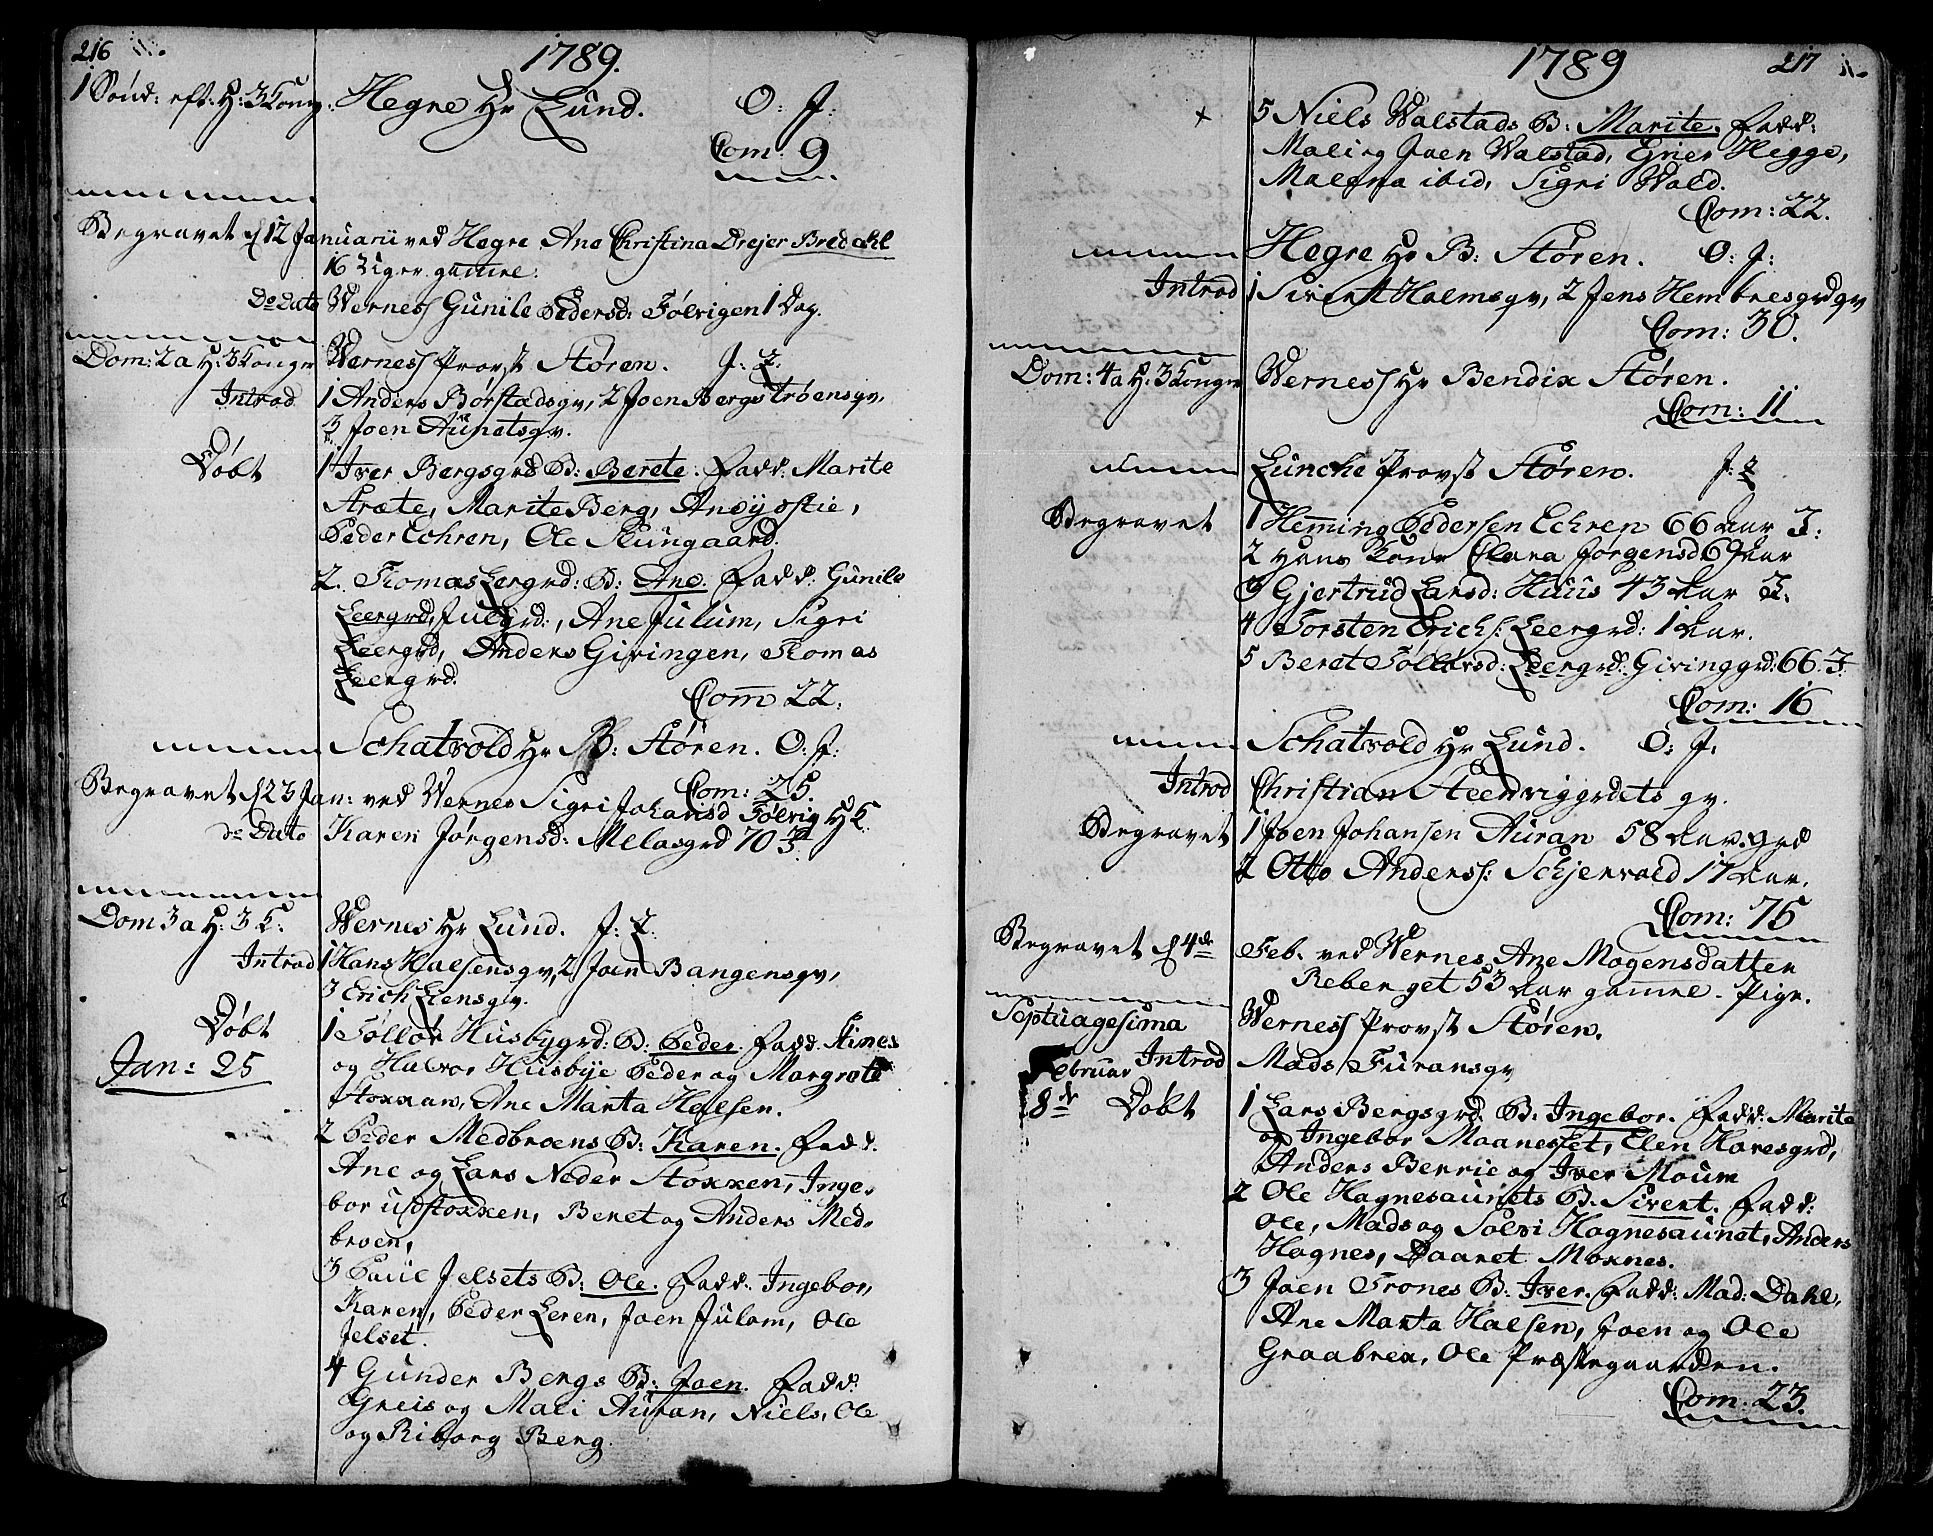 216
1789.
1 Sønd: eft: H: 3 Kong: Hegre Hr Lund. O: J:
Com: 9
Begravet d 12 Januarii ved Hegre Ane Christina Drejer Bredahl
16 Uger gamel.
Do Dato Werness Gunile Pedersd: Følvigen 1 Dag.
Dom: 2 a H: 3 Kongr Werness Provst Støren. J: 2.
Introd 1 Anders Børstadsgv, 2 Joen Bergstrøensgv,
3 Joen Aunetsgv.
Døbt 1 Iver Bergsgrds B: Berete. Fadd: Marite
Træte, Marite Berg, Ane Ystie,
Peder Echren, Ole Stungaard.
2. Tomas Leergrd: B: Ane. Fadd: Gunile
Leergrd, Julgrd:, Ane Julum, Sigri
Leergrd, Anders Givingen, Tomas
Leergrd.
Com 22.
Schatvold Hr B: Støren. O: J:
Com: 25.
Begravet d 23 Jan: ved Wernes Sigri Johansd Følvig H K
do Dato Karen Jørgensd: Melasgrd 70 3.
Dom 3 a H: 3 K: Wernes Hr Lund. J: 2.
Introd 1 Hans Halsensgv, 2 Joen Bangensgv,
3 Erich Liensgv.
Døbt 1 Tollor Husbygrd: B: Peder. Fadd. Stines
Jan: 25
og Halvor Husbye Peder og Margrete
Stokkan, Ane Marta Halsen.
2 Peder Medbroens B: Karen. Fadd:
Ane og Lars Neder Stokken, Inge,
bor upstokken, Beret og Anders Med,
broen,
3 Paul Jelsets B: Ole. Fadd: Ingebor,
Karen, Peder Leren, Joen Julom, Ole
Jelset.
4 Gunder Bergs B: Joen. Fadd:
Greis og Mali Auran, Niels, Ole
og Riborg Berg.
1789
217
5 Niels Walstads B: Marite. Fadd:
Mali og Joen Walstad, Grier Hegge,
Malena ibid, Sigri Wold.
Com: 22.
Hegre Hr B: Støren. O: J:
Introd 1 Sivert Holmsgv, 2 Jens Hembresgrdgv
Com: 30.
Dom: 4 a H: 3 Kongr Werness Hr Bendix Støren.
Com: 11
Lunche Provst Støren. J: 2
Begravet 1 Hemming Pedersen Echren 66 Aar 3:
2 Hans Kone Clara Jørgensd 69 Aar
3 Gjertrud Larsd: Huus 43 Aar 3:
4 Torsten Erichs: Leergrd: 1 Aar.
5 Beret Tollevsd: Leergrd: Givinggrd: 66. 3
Com: 16
Schatvold Hr Lund. O: J:
Introd Christian Steenviggrdets gv.
Begravet 1 Joen Johansen Auran 58 Aar. grd
2 Otto Anderss: Schjervold 17 Aar.
Com: 76
Begravet d 4de Feb. ved Wernes Ane Mogensdatter
Reberget 53 Aar gamel. Pige.
Septuagesima Werness Provst Støren.
Introd Mads Furansgv
Februar 8de Døbt 1 Lars Bergsgrd: B: Ingebor. Fadd: Marite
og Ingebor Maanesset, Elen Haresgrd,
Anders Berrie og Iver Moum
2 Ole Hognesaunets B: Sivert. Fadd:
Ole, Mads og Solvi Hognesaunet, Anders
Hognes, Baaret Moxnes.
3 Joen Trones B: Iver. Fadd: Mad: Dahl,
Ane Marta Halsen, Joen og Ole
Graabrek, Ole Præstegaarden.
Com. 23.